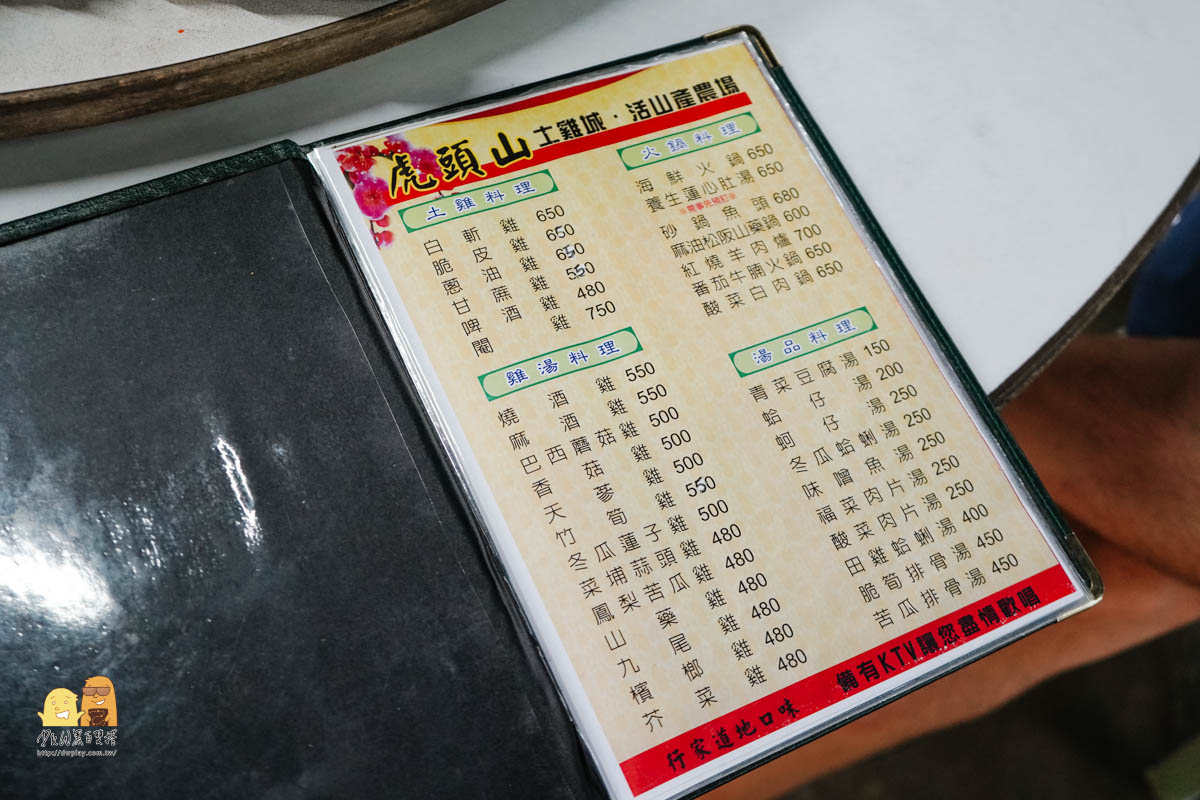 虎頭山 土雞城·活山產農場
土雞料理
白斬雞 650
脆皮雞 650
蔥油雞 650
甘蔗雞 550
啤酒雞 480
閹雞 750
雞湯料理
燒酒雞 550
麻酒雞 550
巴西蘑菇雞 500
香菇雞 500
天蔘雞 500
竹筍雞 550
冬瓜蓮子雞 500
菜埔蒜頭雞 480
鳳梨苦瓜雞 480
山藥雞 480
九尾雞 480
檳榔雞 480
芥菜雞 480
火鍋料理
海鮮火鍋 650
養生蓮心肚湯 650
※需事先預訂※
砂鍋魚頭 680
麻油松阪山藥鍋 600
紅燒羊肉爐 700
番茄牛腩火鍋 650
酸菜白肉鍋 650
湯品料理
青菜豆腐湯 150
蛤仔湯 200
蚵仔湯 250
冬瓜蛤蜊湯 250
味噌魚湯 250
福菜肉片湯 250
酸菜肉片湯 250
田雞蛤蜊湯 400
脆筍排骨湯 450
苦瓜排骨湯 450
行家道地口味 備有KTV讓您盡情歡唱
http://dwplay.com.tw/